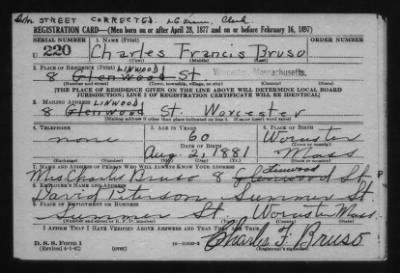 STREET CORRECTED. Clerk
REGISTRATION CARD—(Men born on or after April 28, 1877 and on or before February 16, 1897)
SERIAL NUMBER
1. NAME (Print)
ORDER NUMBER
U 220
Charles Francis Bruso
(First) (Middle) (Last)
2. PLACE OF RESIDENCE (Print)
LINWOOD
8 Glenwood St Worcester, Massachusetts.
(Number and street) (Town, township, village, or city) (County) (State)
[THE PLACE OF RESIDENCE GIVEN ON THE LINE ABOVE WILL DETERMINE LOCAL BOARD
JURISDICTION; LINE 2 OF REGISTRATION CERTIFICATE WILL BE IDENTICAL]
3. MAILING ADDRESS
LINWOOD
8 Glenwood St. Worcester
[Mailing address if other than place indicated on line 2. If same insert word same]
4. TELEPHONE
5. AGE IN YEARS
6. PLACE OF BIRTH
none
60
Worcester
DATE OF BIRTH
(Town or county)
Aug 2, 1881
Mass
(Exchange) (Number)
(Mo.) (Day) (Yr.)
(State or country)
7. NAME AND ADDRESS OF PERSON WHO WILL ALWAYS KNOW YOUR ADDRESS
Linwood
Mrs Charles Bruso 8 Glenwood St
8. EMPLOYER'S NAME AND ADDRESS
David Peterson Summer St
9. PLACE OF EMPLOYMENT OR BUSINESS
Summer St Worcester Mass.
(Number and street or R. F. D. number) (Town) (County) (State)
I AFFIRM THAT I HAVE VERIFIED ABOVE ANSWERS AND THAT THEY ARE TRUE.
D. S. S. Form 1
(Revised 4-1-42)
Charles F. Bruso
(Registrant's signature)